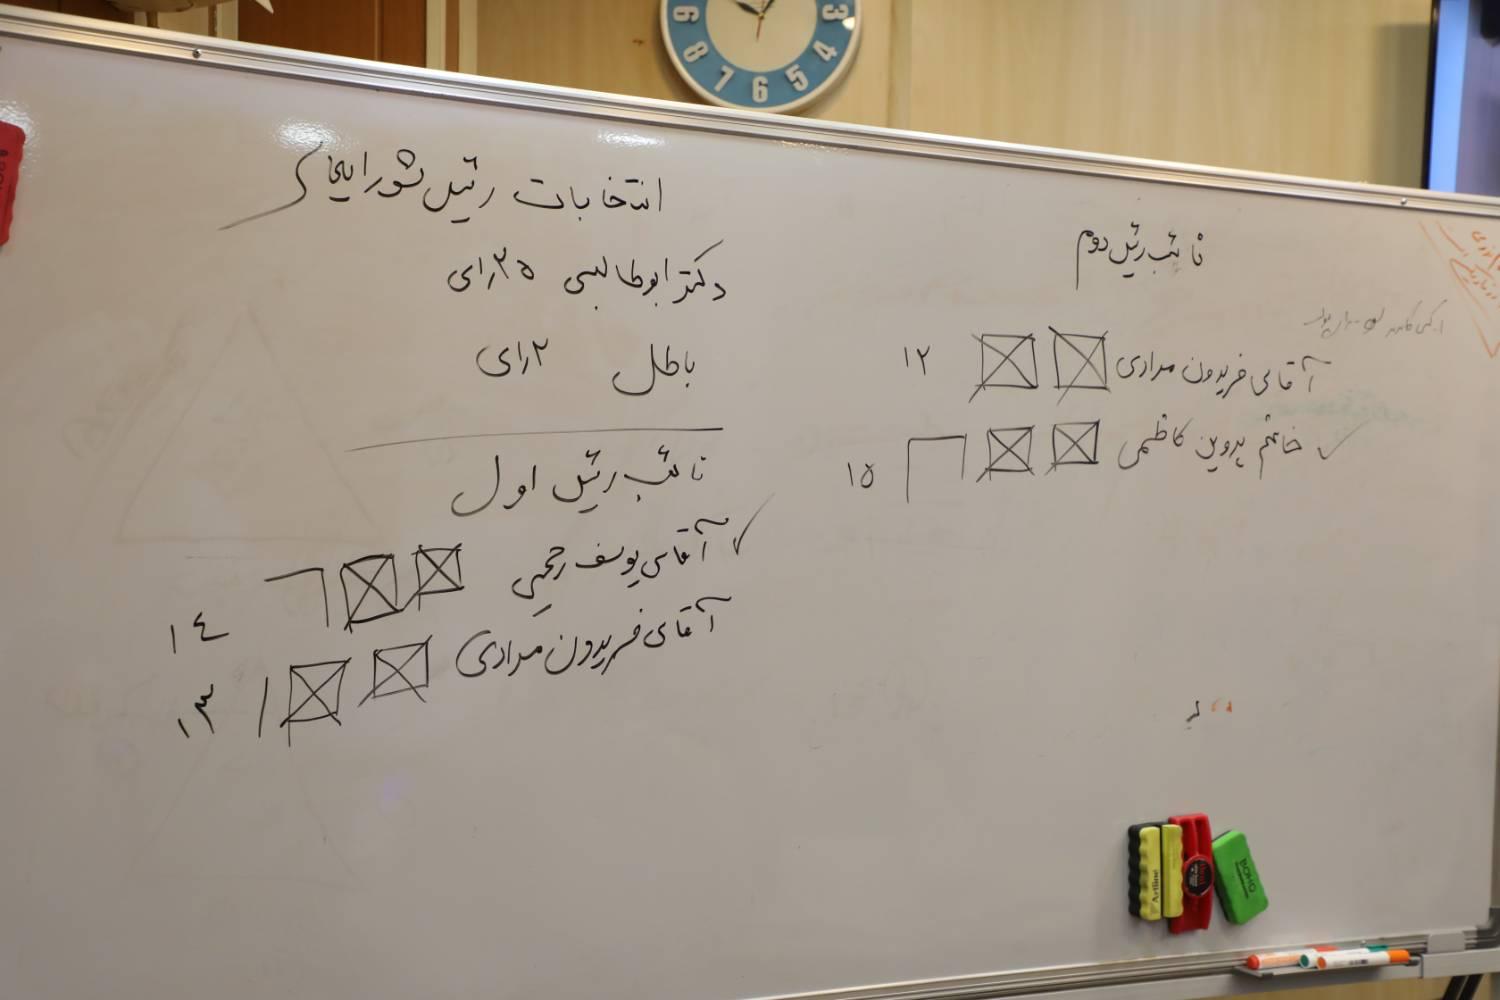 انتخابات رئیس شورایاری
دکتر ابوطالبی ۲۵ رای
باطل ۲ رای
نائب رئیس اول
آقای یوسف رجبی ۱۴
آقای فریدون مرادی ۱۳
نائب رئیس دوم
آقای فریدون مرادی ۱۲
خانم پروین کاظمی ۱۵
3
4
5
6
7
8
9
Artline
BOHO